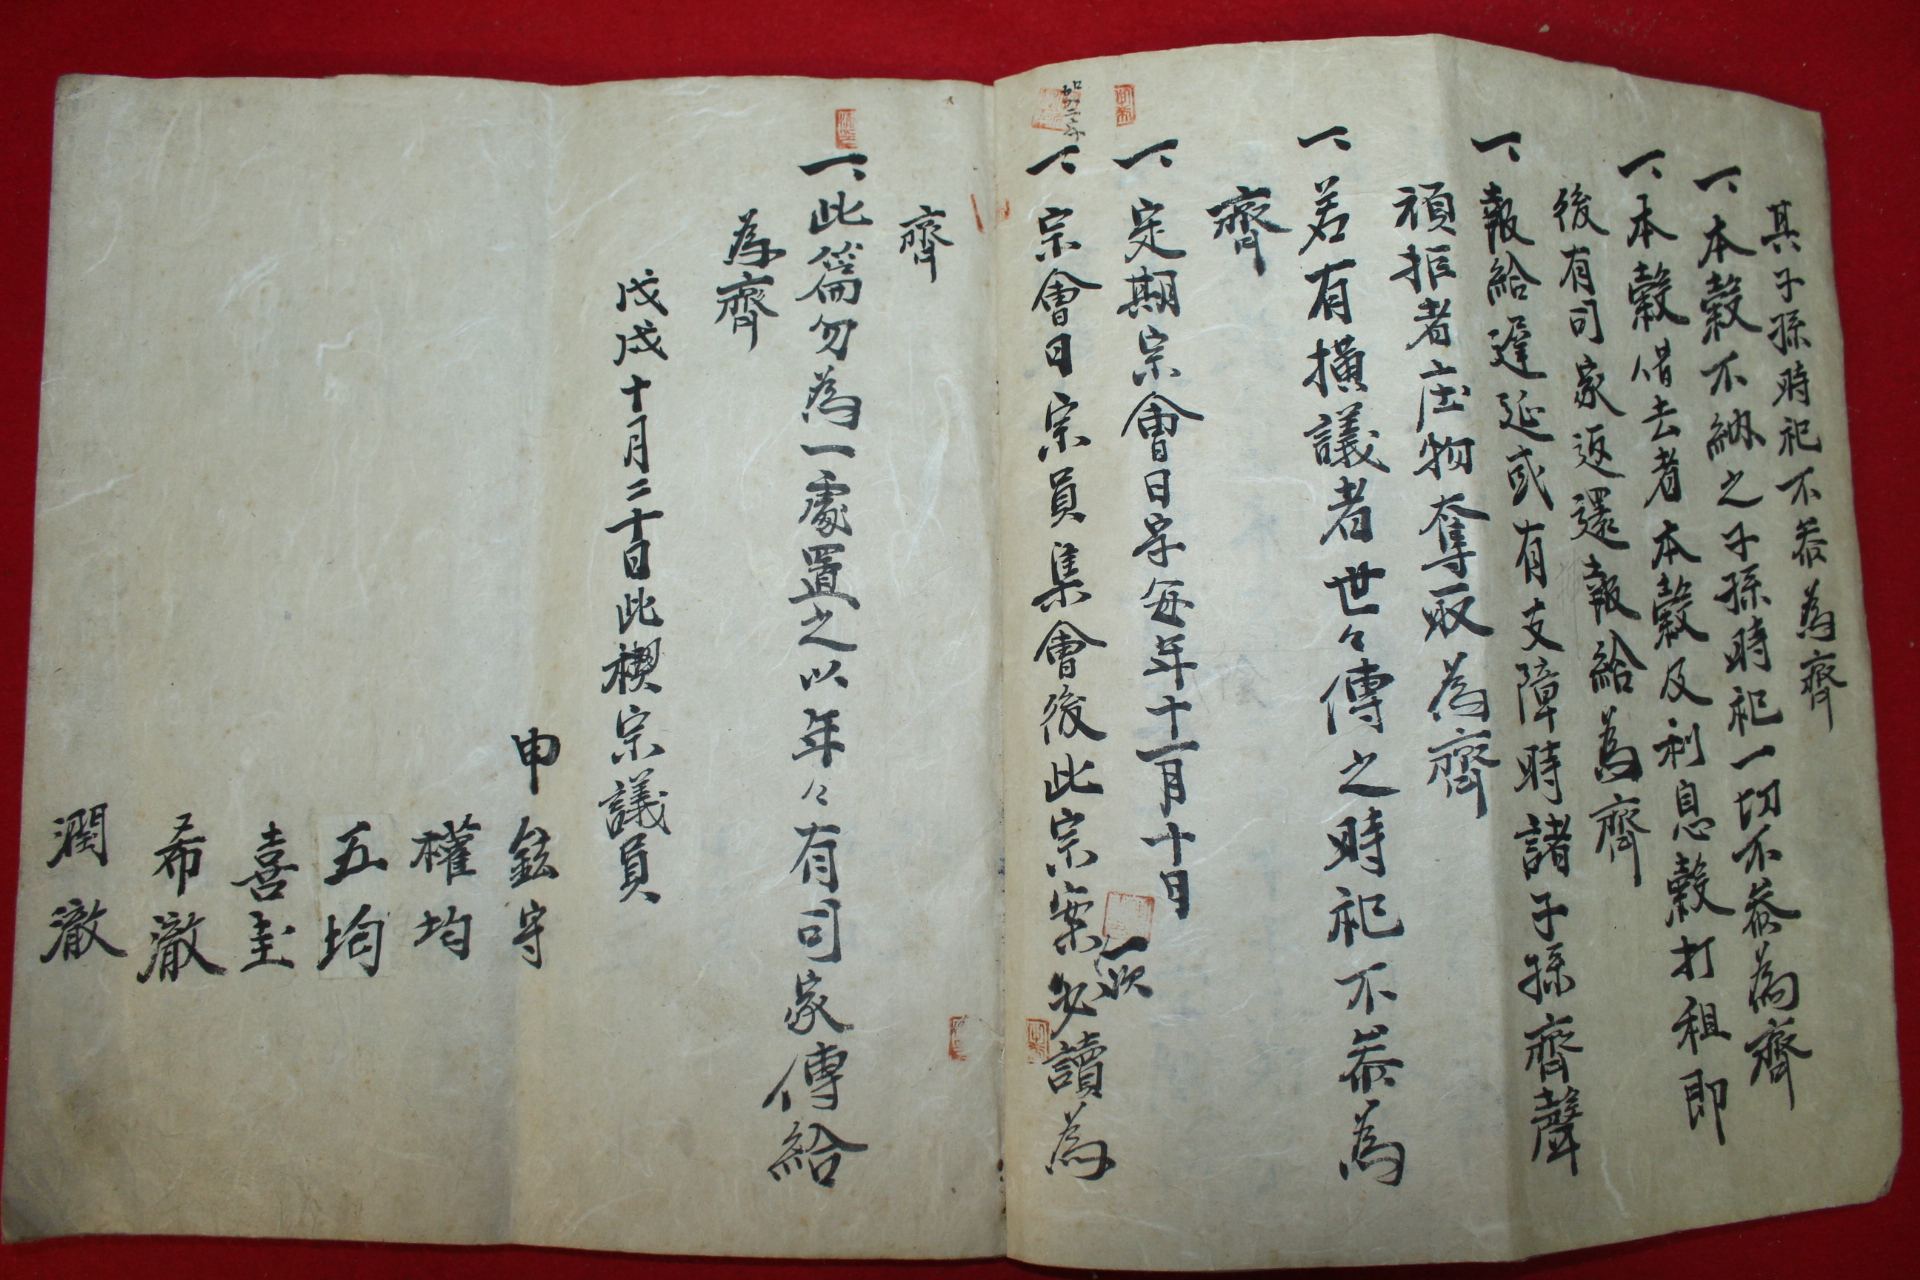 其子孫時祀不叅為齊
一、本穀不納之子孫時祀一切不叅為齊
一、本穀借去者本穀及利息穀打租即
後有司家返還報給為齊
一、報給遲延或有支障時諸子孫齊聲
頑拒者庄物奪取為齊
一、若有橫議者世々傳之時祀不叅為
齊
一、定期宗會日字每年十一月十日
一次
一、宗會日宗員集會後此宗案必讀為
齊
一、此篇勿為一處置之以年々有司家傳給
為齊
戊戌十月二十日此禊宗議員
申鉉守
權均
五均
喜圭
希澈
潤澈